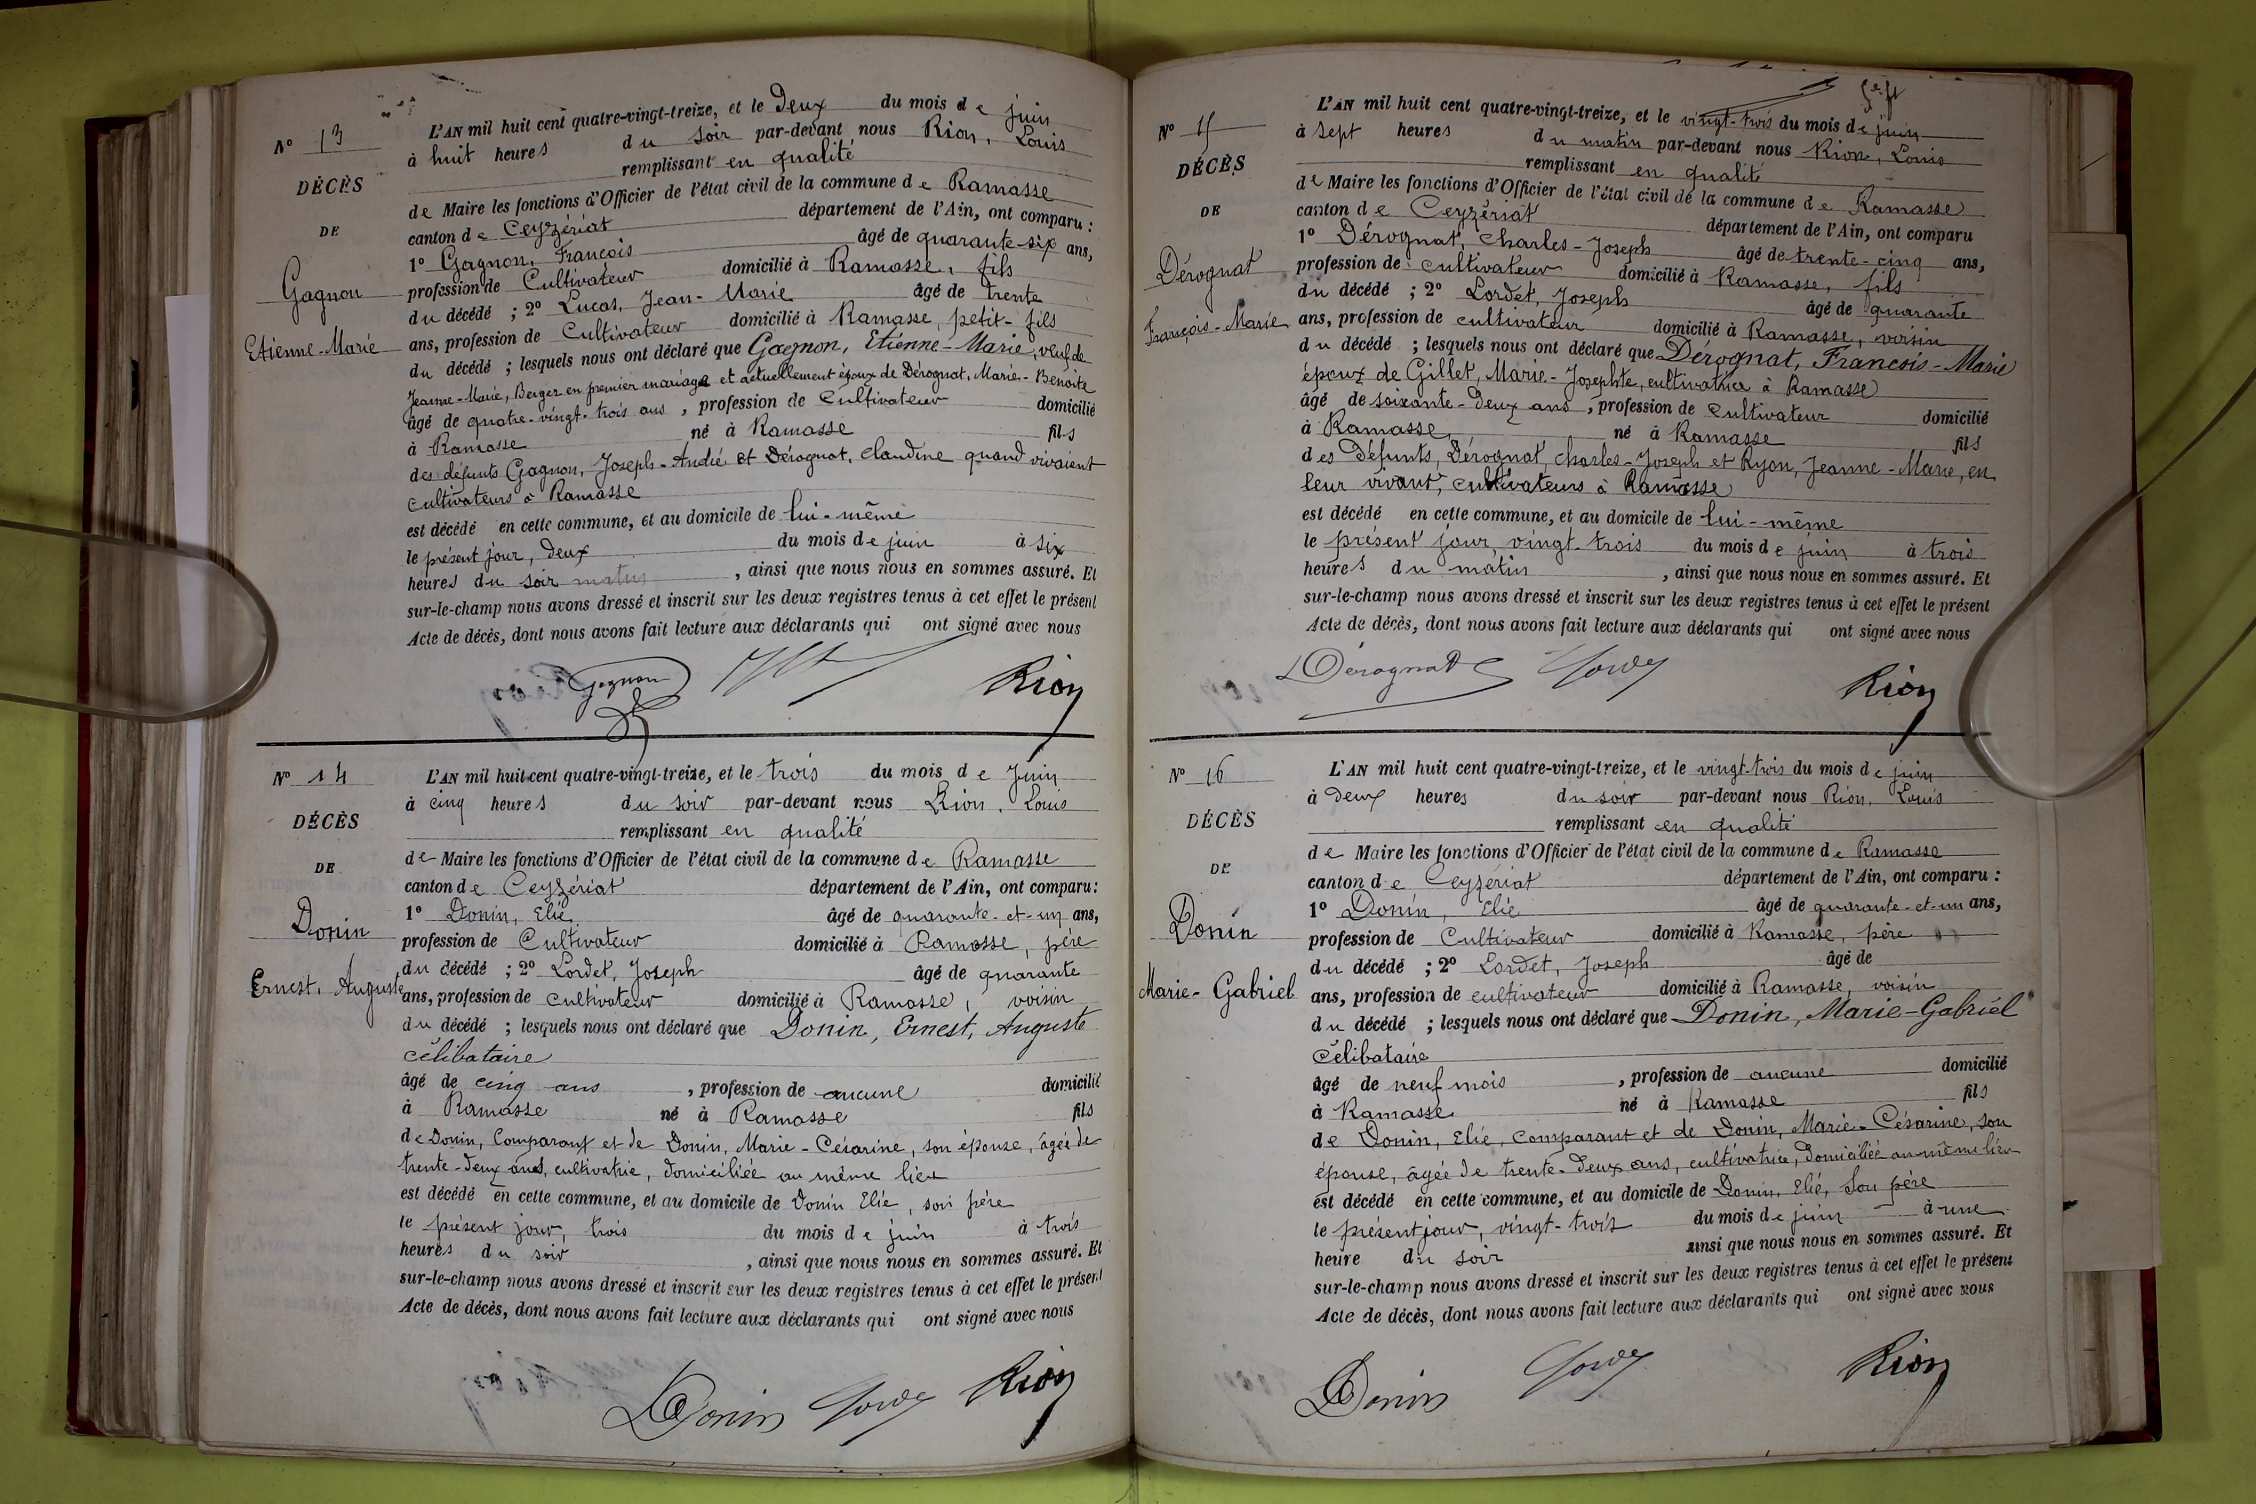 N° 13
DÉCÈS
DE
Gagnon
Etienne-Marie
L'AN mil huit cent quatre-vingt-treize, et le Deux du mois de juin
à huit heures du soir par-devant nous Rion, Louis
remplissant en qualité
de Maire les fonctions d'Officier de l'état civil de la commune de Ramasse
canton de Ceyzériat département de l'Ain, ont comparu :
1° Gagnon, François âgé de quarante-six ans,
profession de Cultivateur domicilié à Ramasse, fils
du décédé ; 2° Lucas, Jean-Marie âgé de trente
ans, profession de Cultivateur domicilié à Ramasse, petit-fils
du décédé ; lesquels nous ont déclaré que Gagnon, Etienne-Marie, veuf de
Jeanne-Marie, Berger en premier mariage et actuellement époux de Dérognat, Marie-Benoite
âgé de quatre-vingt-trois ans, profession de Cultivateur domicilié
à Ramasse né à Ramasse fils
des défunts Gagnon, Joseph-André et Dérognat, Claudine quand vivaient
cultivateurs à Ramasse
est décédé en cette commune, et au domicile de lui-même
le présent jour, deux du mois de juin à six
heures du soir matin, ainsi que nous nous en sommes assuré. Et
sur-le-champ nous avons dressé et inscrit sur les deux registres tenus à cet effet le présent
Acte de décès, dont nous avons fait lecture aux déclarants qui ont signé avec nous
Gagnon Rion
N° 14
DÉCÈS
DE
Donin
Ernest, Auguste
L'AN mil huit cent quatre-vingt-treize, et le trois du mois de Juin
à cinq heures du soir par-devant nous Rion, Louis
remplissant en qualité
de Maire les fonctions d'Officier de l'état civil de la commune de Ramasse
canton de Ceyzériat département de l'Ain, ont comparu :
1° Donin, Elie âgé de quarante-et-un ans,
profession de Cultivateur domicilié à Ramasse, père
du décédé ; 2° Lordet, Joseph âgé de quarante
ans, profession de cultivateur domicilié à Ramasse, voisin
du décédé ; lesquels nous ont déclaré que Donin, Ernest, Auguste
célibataire
âgé de cinq ans, profession de aucune domicilié
à Ramasse né à Ramasse fils
de Donin, Comparant et de Donin, Marie-Césarine, son épouse, âgée de
trente-deux ans, cultivatrie, domiciliée au même lieu
est décédé en cette commune, et au domicile de Donin Elie, son père
le présent jour, trois du mois de juin à trois
heures du soir, ainsi que nous nous en sommes assuré. Et
sur-le-champ nous avons dressé et inscrit sur les deux registres tenus à cet effet le présent
Acte de décès, dont nous avons fait lecture aux déclarants qui ont signé avec nous
Donin Rion
N° 15
DÉCÈS
DE
Dérognat
François-Marie
L'AN mil huit cent quatre-vingt-treize, et le vingt-trois du mois de juin
à sept heures du matin par-devant nous Rion, Louis
remplissant en qualité
de Maire les fonctions d'Officier de l'état civil de la commune de Ramasse
canton de Ceyzériat département de l'Ain, ont comparu
1° Dérognat, Charles-Joseph âgé de trente-cinq ans,
profession de cultivateur domicilié à Ramasse, fils
du décédé ; 2° Lordet, Joseph âgé de quarante
ans, profession de cultivateur domicilié à Ramasse, voisin
du décédé ; lesquels nous ont déclaré que Dérognat, François-Marie
époux de Gillet, Marie-Josephte, cultivatrice à Ramasse
âgé de soixante-deux ans, profession de cultivateur domicilié
à Ramasse né à Ramasse fils
des Défunts, Dérognat, Charles-Joseph et Ryon, Jeanne-Marie, en
leur vivant, cultivateurs à Ramasse
est décédé en cette commune, et au domicile de lui-même
le présent jour, vingt-trois du mois de juin à trois
heures du matin, ainsi que nous nous en sommes assuré. Et
sur-le-champ nous avons dressé et inscrit sur les deux registres tenus à cet effet le présent
Acte de décès, dont nous avons fait lecture aux déclarants qui ont signé avec nous
Dérognat Rion
N° 16
DÉCÈS
DE
Donin
Marie-Gabriel
L'AN mil huit cent quatre-vingt-treize, et le vingt-trois du mois de juin
à deux heures du soir par-devant nous Rion, Louis
remplissant en qualité
de Maire les fonctions d'Officier de l'état civil de la commune de Ramasse
canton de Ceyzériat département de l'Ain, ont comparu :
1° Donin, Elie âgé de quarante-et-un ans,
profession de Cultivateur domicilié à Ramasse, père
du décédé ; 2° Lordet, Joseph âgé de
ans, profession de cultivateur domicilié à Ramasse, voisin
du décédé ; lesquels nous ont déclaré que Donin, Marie-Gabriel
célibataire
âgé de neuf mois, profession de aucune domicilié
à Ramasse né à Ramasse fils
de Donin, Elie, comparant et de Donin, Marie-Césarine, son
épouse, âgée de trente-deux ans, cultivatrice, domiciliée au même lieu
est décédé en cette commune, et au domicile de Donin, Elie, son père
le présent jour, vingt-trois du mois de juin à une
heure du soir ainsi que nous nous en sommes assuré. Et
sur-le-champ nous avons dressé et inscrit sur les deux registres tenus à cet effet le présent
Acte de décès, dont nous avons fait lecture aux déclarants qui ont signé avec nous
Donin Rion